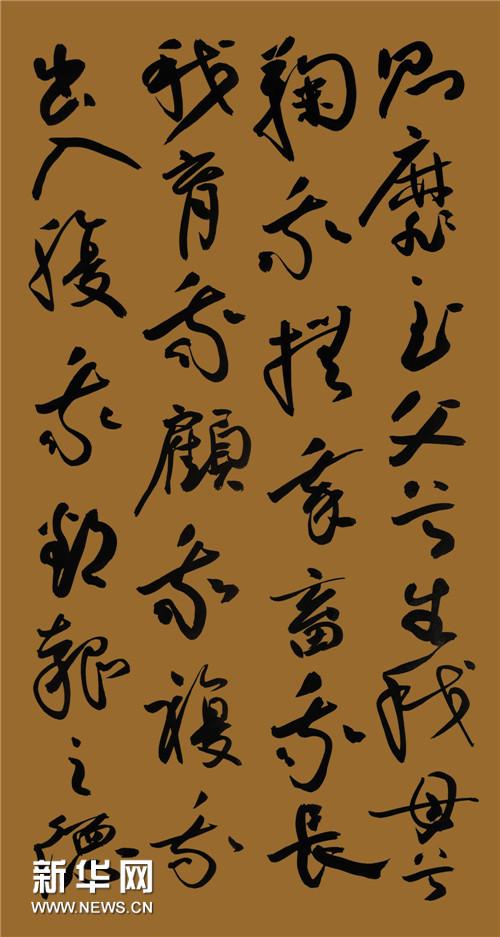 則靡至父兮生我母兮
鞠我撫我畜我長
我育我顧我複我
出入腹我欲報之德
新华网
WWW.NEWS.CN